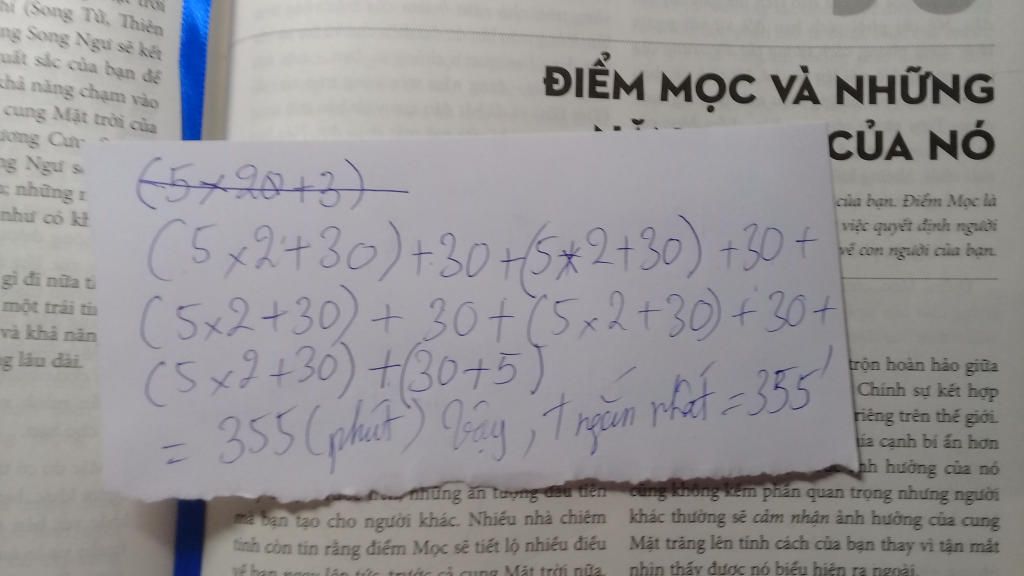 hí (Song Tử, Thiên
ng Song Ngư sẽ kết
uất sắc của bạn để
khả năng chạm vào
cung Mặt trời của
ương Cưu
ng Ngư s
a; những
như có kh
gì đi nữa t
một trái tin
và khả năn
g lâu dài.
ĐIỂM MỌC VÀ NHỮNG
CỦA NÓ
của bạn. Điểm Mọc là
việc quyết định người
về con người của bạn.
(5×20+3)
(5×2+30)+30+(5×2+30)+30+
(5×2+30)+30+(5×2+30)+30+
(5×2+30)+(30+5)
=355(phút) Vậy, t ngắn nhất=355'
trộn hoàn hảo giữa
Chính sự kết hợp
riêng trên thế giới.
ía cạnh bí ẩn hơn
nh hưởng của nó
những ấn tượng đầu tiên
mà bạn tạo cho người khác. Nhiều nhà chiêm
tinh còn tin rằng điểm Mọc sẽ tiết lộ nhiều điều
về bạn ngay lập tức, trước cả cung Mặt trời nữa.
cũng không kém phần quan trọng nhưng người
khác thường sẽ cảm nhận ảnh hưởng của cung
Mặt trăng lên tính cách của bạn thay vì tận mắt
nhìn thấy được nó biểu hiện ra ngoài.